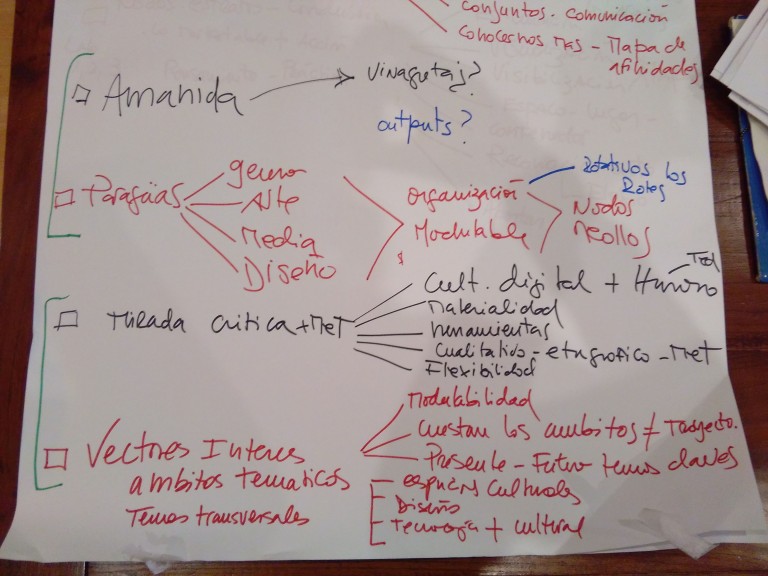 conjuntos. comunicación
conocernos mas - Mapa de
afinidades
Amanida
vinagretas?
outputs?
Paraguas
genero
Arte
Media
Diseño
organización
Modulable
Rotativos los
Roles
Nodos
Mirada critica + Met
Cult. digital + Humano
Materialidad
herramientas
Cualitativo - etnografico - Met
Flexibilidad
Vectores Interes
ambitos tematicos
Temas transversales
Modulabilidad
los ambitos ≠
Presente - Futuro temas claves
espacios culturales
Diseño
Tecnologia + cultural